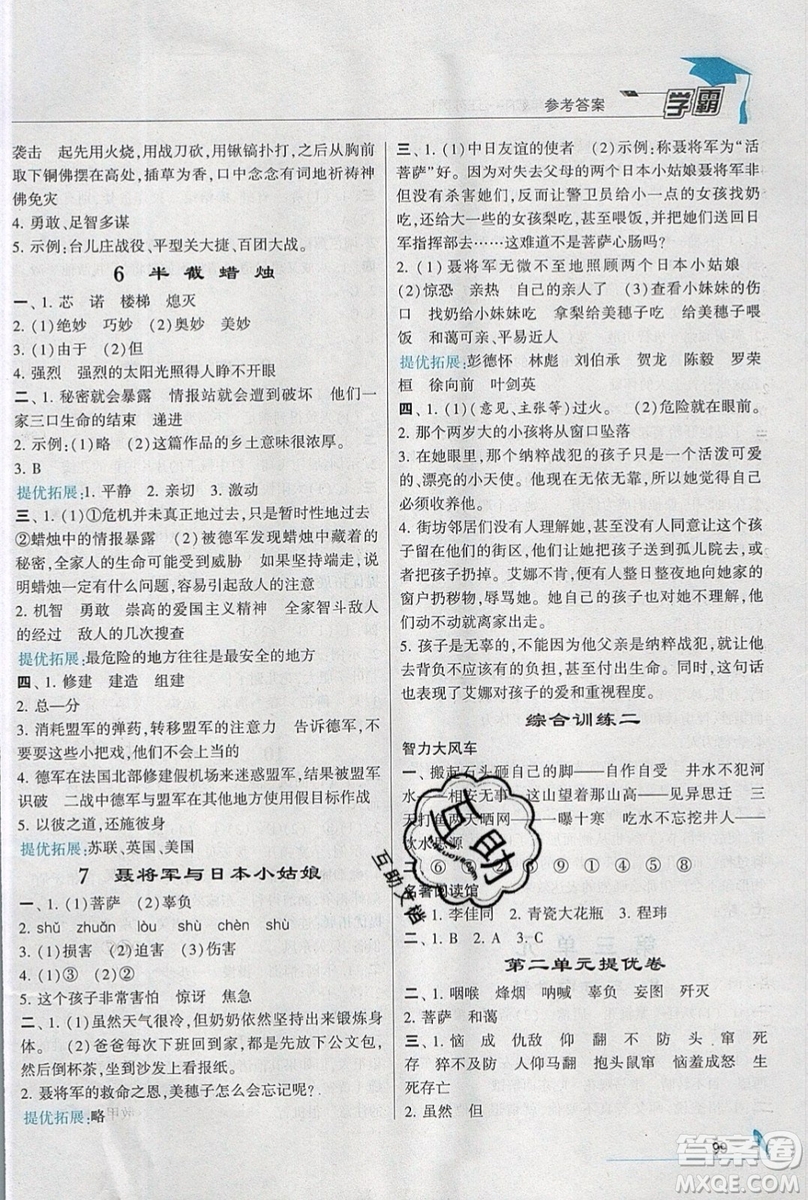 参考答案
学霸
袭击　起先用火烧,用战刀砍,用锹镐扑打,之后从胸前
取下铜佛摆在高处,插草为香,口中念念有词地祈祷神
佛免灾
4. 勇敢、足智多谋
5. 示例:台儿庄战役、平型关大捷、百团大战。
6 半截蜡烛
一、1. 芯　诺　楼梯　熄灭
2. (1)绝妙　巧妙　(2)奥妙　美妙
3. (1)由于　(2)但
4. 强烈　强烈的太阳光照得人睁不开眼
二、1. 秘密就会暴露　情报站就会遭到破坏　他们一
家三口生命的结束　递进
2. 示例:(1)略　(2)这篇作品的乡土意味很浓厚。
3. B
提优拓展:1. 平静　2. 亲切　3. 激动
三、1. (1)①危机并未真正地过去,只是暂时性地过去
②蜡烛中的情报暴露　(2)被德军发现蜡烛中藏着的
秘密,全家人的生命可能受到威胁　如果坚持端走,说
明蜡烛一定有什么问题,万万不能引起敌人的注意
2. 机智　勇敢　崇高的爱国主义精神　全家智斗敌人
的经过　敌人的几次搜查
提优拓展:最危险的地方往往是最安全的地方
四、1. 修建　建造　组建
2. 总—分
3. 消耗盟军的弹药,转移盟军的注意力　告诉德军,不
要耍这些小把戏,他们的计划已被盟军发现
4. 德军在法国北部修建假机场来迷惑盟军,被盟军
识破　二战中德军与盟军在其他地方使用假目标作战
5. 以彼之道,还施彼身
提优拓展:苏联、英国、美国
7 聂将军与日本小姑娘
一、1. (1)菩萨　(2)辜负
2. shǔ　zhuǎn　lòu　shù　chèn　shù
3. (1)损害　(2)迫害　(3)伤害
4. (1)③　(2)①
5. 这个孩子非常害怕　惊讶　焦急
二、1. (1)虽然天气很冷,但奶奶依然坚持每天锻炼身
体。　(2)爸爸每次下班回到家里,都会先放下公文包,
换上拖鞋,然后打开茶杯,倒上茶叶,冲上热水,端着茶
杯,坐到沙发上看报纸。
2. 聂将军的救命之恩,美穗子怎么会忘记呢?
提优拓展:略
三、1. (1)中日友谊的使者　(2)示例:称聂将军为“活
菩萨”好。因为对失去父母的两个日本小姑娘聂将军非
但没有杀害她们,反而让警卫员给小一点的女孩找奶
吃,甚至喂梨给大一点的女孩梨吃,甚至喂饭,并写信将她们送回日
军指挥部去……这难道不是菩萨心肠吗?
2. (1)聂将军无微不至地照顾两个日本小姑娘
(2)惊恐　亲热　自己的亲人了　(3)查看小妹妹的伤
口　找奶给小妹妹吃　拿梨给美穗子吃　给美穗子喂
饭　和蔼可亲、平易近人
提优拓展:彭德怀　林彪　刘伯承　贺龙　陈毅　罗荣
桓　徐向前　叶剑英
四、1. (1)(意见、主张等)过火。　(2)危险就在眼前。
2. 那个两岁大的小孩子从窗口坠落
3. 在她眼里,那个纳粹战犯的孩子只是一个可爱的
、漂亮的小天使。他现在无依无靠,所以她感觉自己
必须收养他。
4. 街坊邻居们没有人理解她,甚至没有人同意让这个孩
子留在他们的街区,他们让她把孩子送到孤儿院去,或者
把孩子扔掉。艾娜不肯,甚至整日整夜有人向她家的
窗户扔秽物,辱骂她。她自己的孩子也对她不理解,他
们动不动就离家出走。
5. 孩子是无辜的,不能因为他父亲是纳粹战犯,就让他
去背负不应该有的负担,甚至付出生命。同时,这句话
也表现了艾娜对孩子的爱和重视程度。
综合训练二
智力大风车
一、搬起石头砸自己的脚——自作自受　井水不犯河
水——相安无事　这山望着那山高——见异思迁　三
天打鱼两天晒网——一曝十寒　吃水不忘挖井人——
饮水思源
⑥　②　⑨　①　④　⑤
名著阅读馆
一、1. 李佳同　2. 青瓷大花瓶　3. 程玮
二、1. B　2. A　3. C
第二单元提优卷
一、1. 咽喉　烽烟　呐喊　辜负　妄图　歼灭
2. 菩萨　和蔼
三、1. 恼　成　仇敌　御　邻　不　防　头　窜　死
存　猝不及防　人仰马翻　抱头鼠窜　恼羞成怒　生
死存亡
2. 虽然　但
99
互助
互助文档
答案圈
MXQE.COM